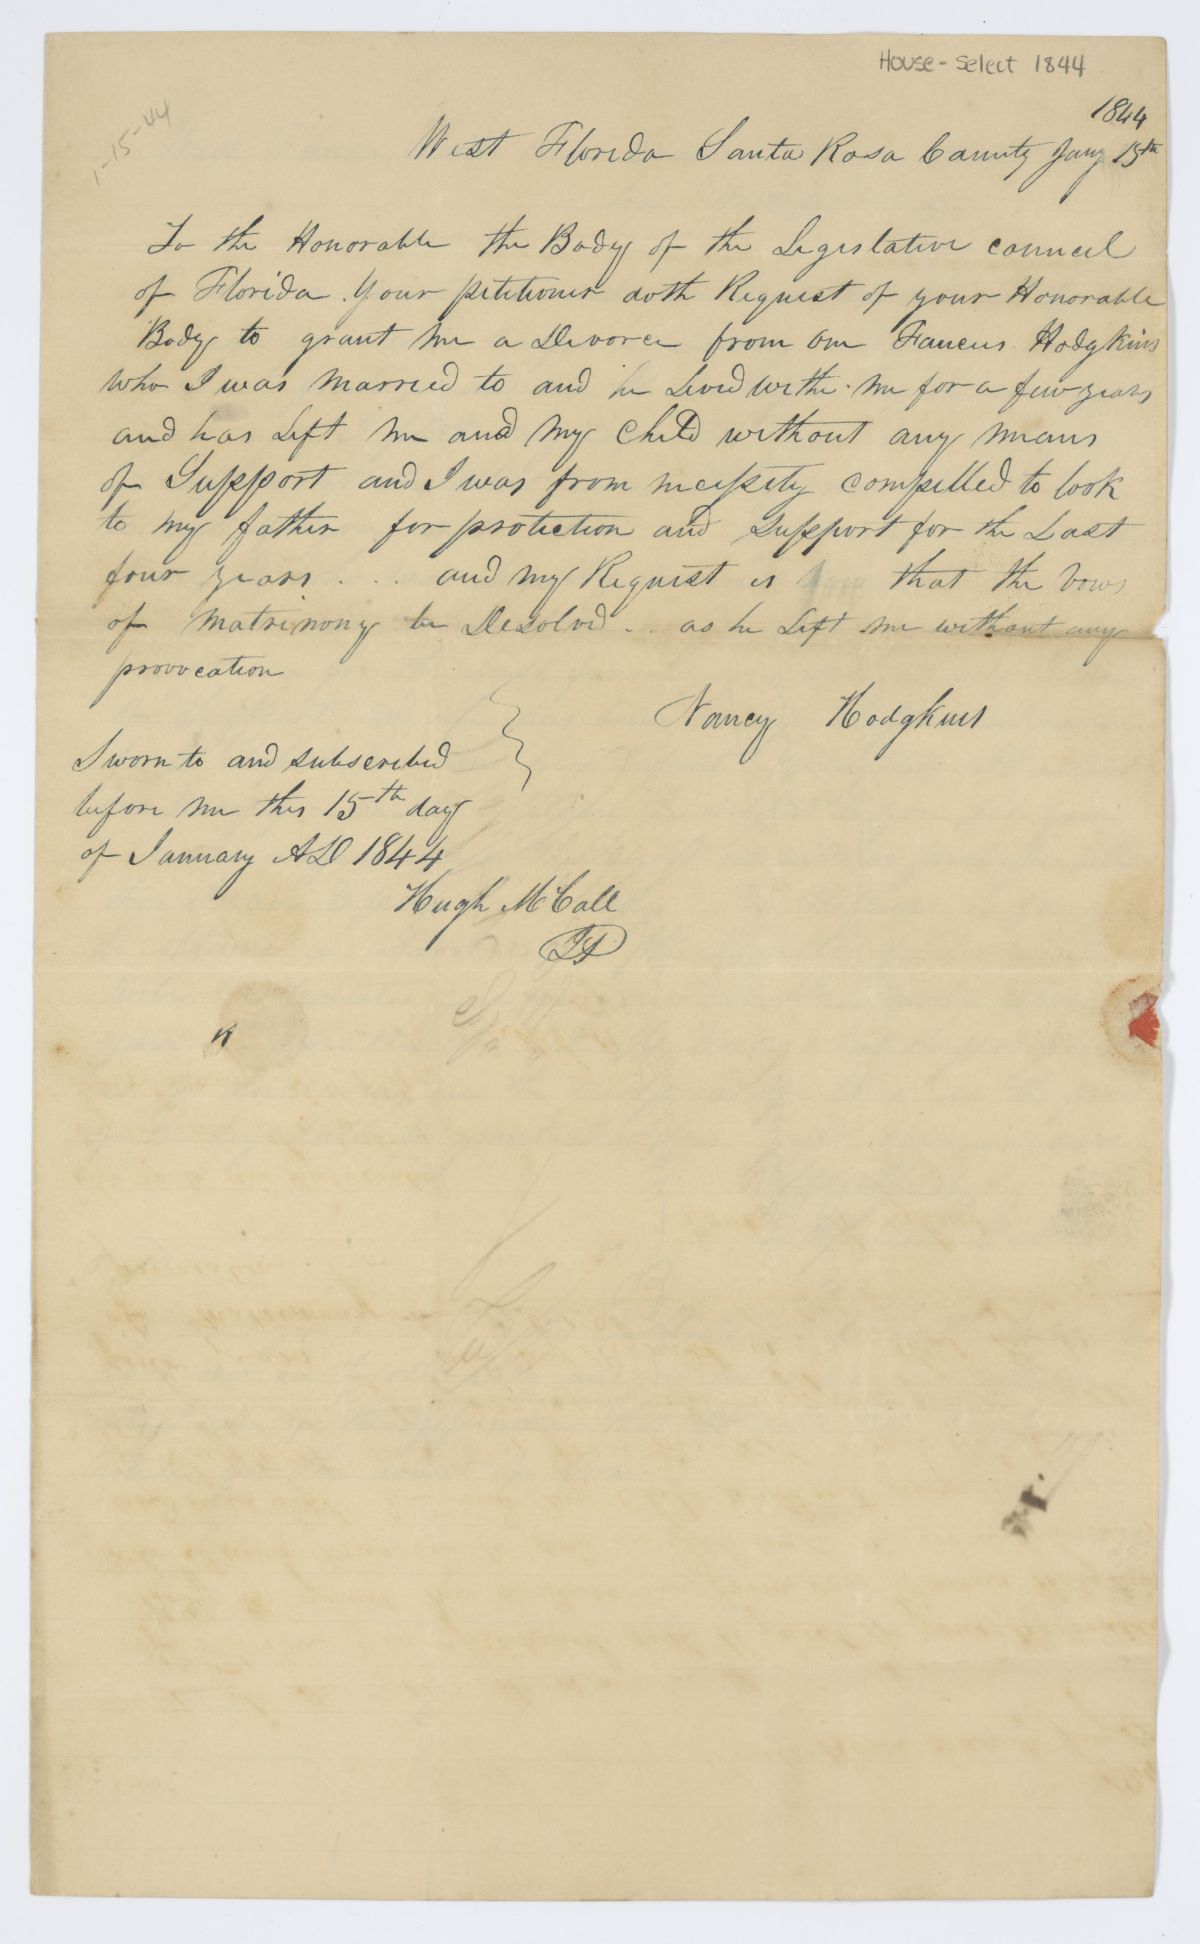 House - Select 1844
1-15-44
1844
West Florida Santa Rosa County Jany 15th
To the Honorable the Body of the Legislative council
of Florida. Your petitioner doth Request of your Honorable
Body to grant me a Divorce from one Hodgkins
who I was married to and he Lived withe me for a few years
and has Left me and my Child without any means
of Support and I was from necessity compelled to look
to my father for protection and support for the Last
four years . . . and my Request is that the vows
of matrimony be Desolved . . as he Left me without any
provocation
Nancy Hodgkins
Sworn to and subscribed
before me this 15th day
of January AD 1844
Hugh McCall
JP